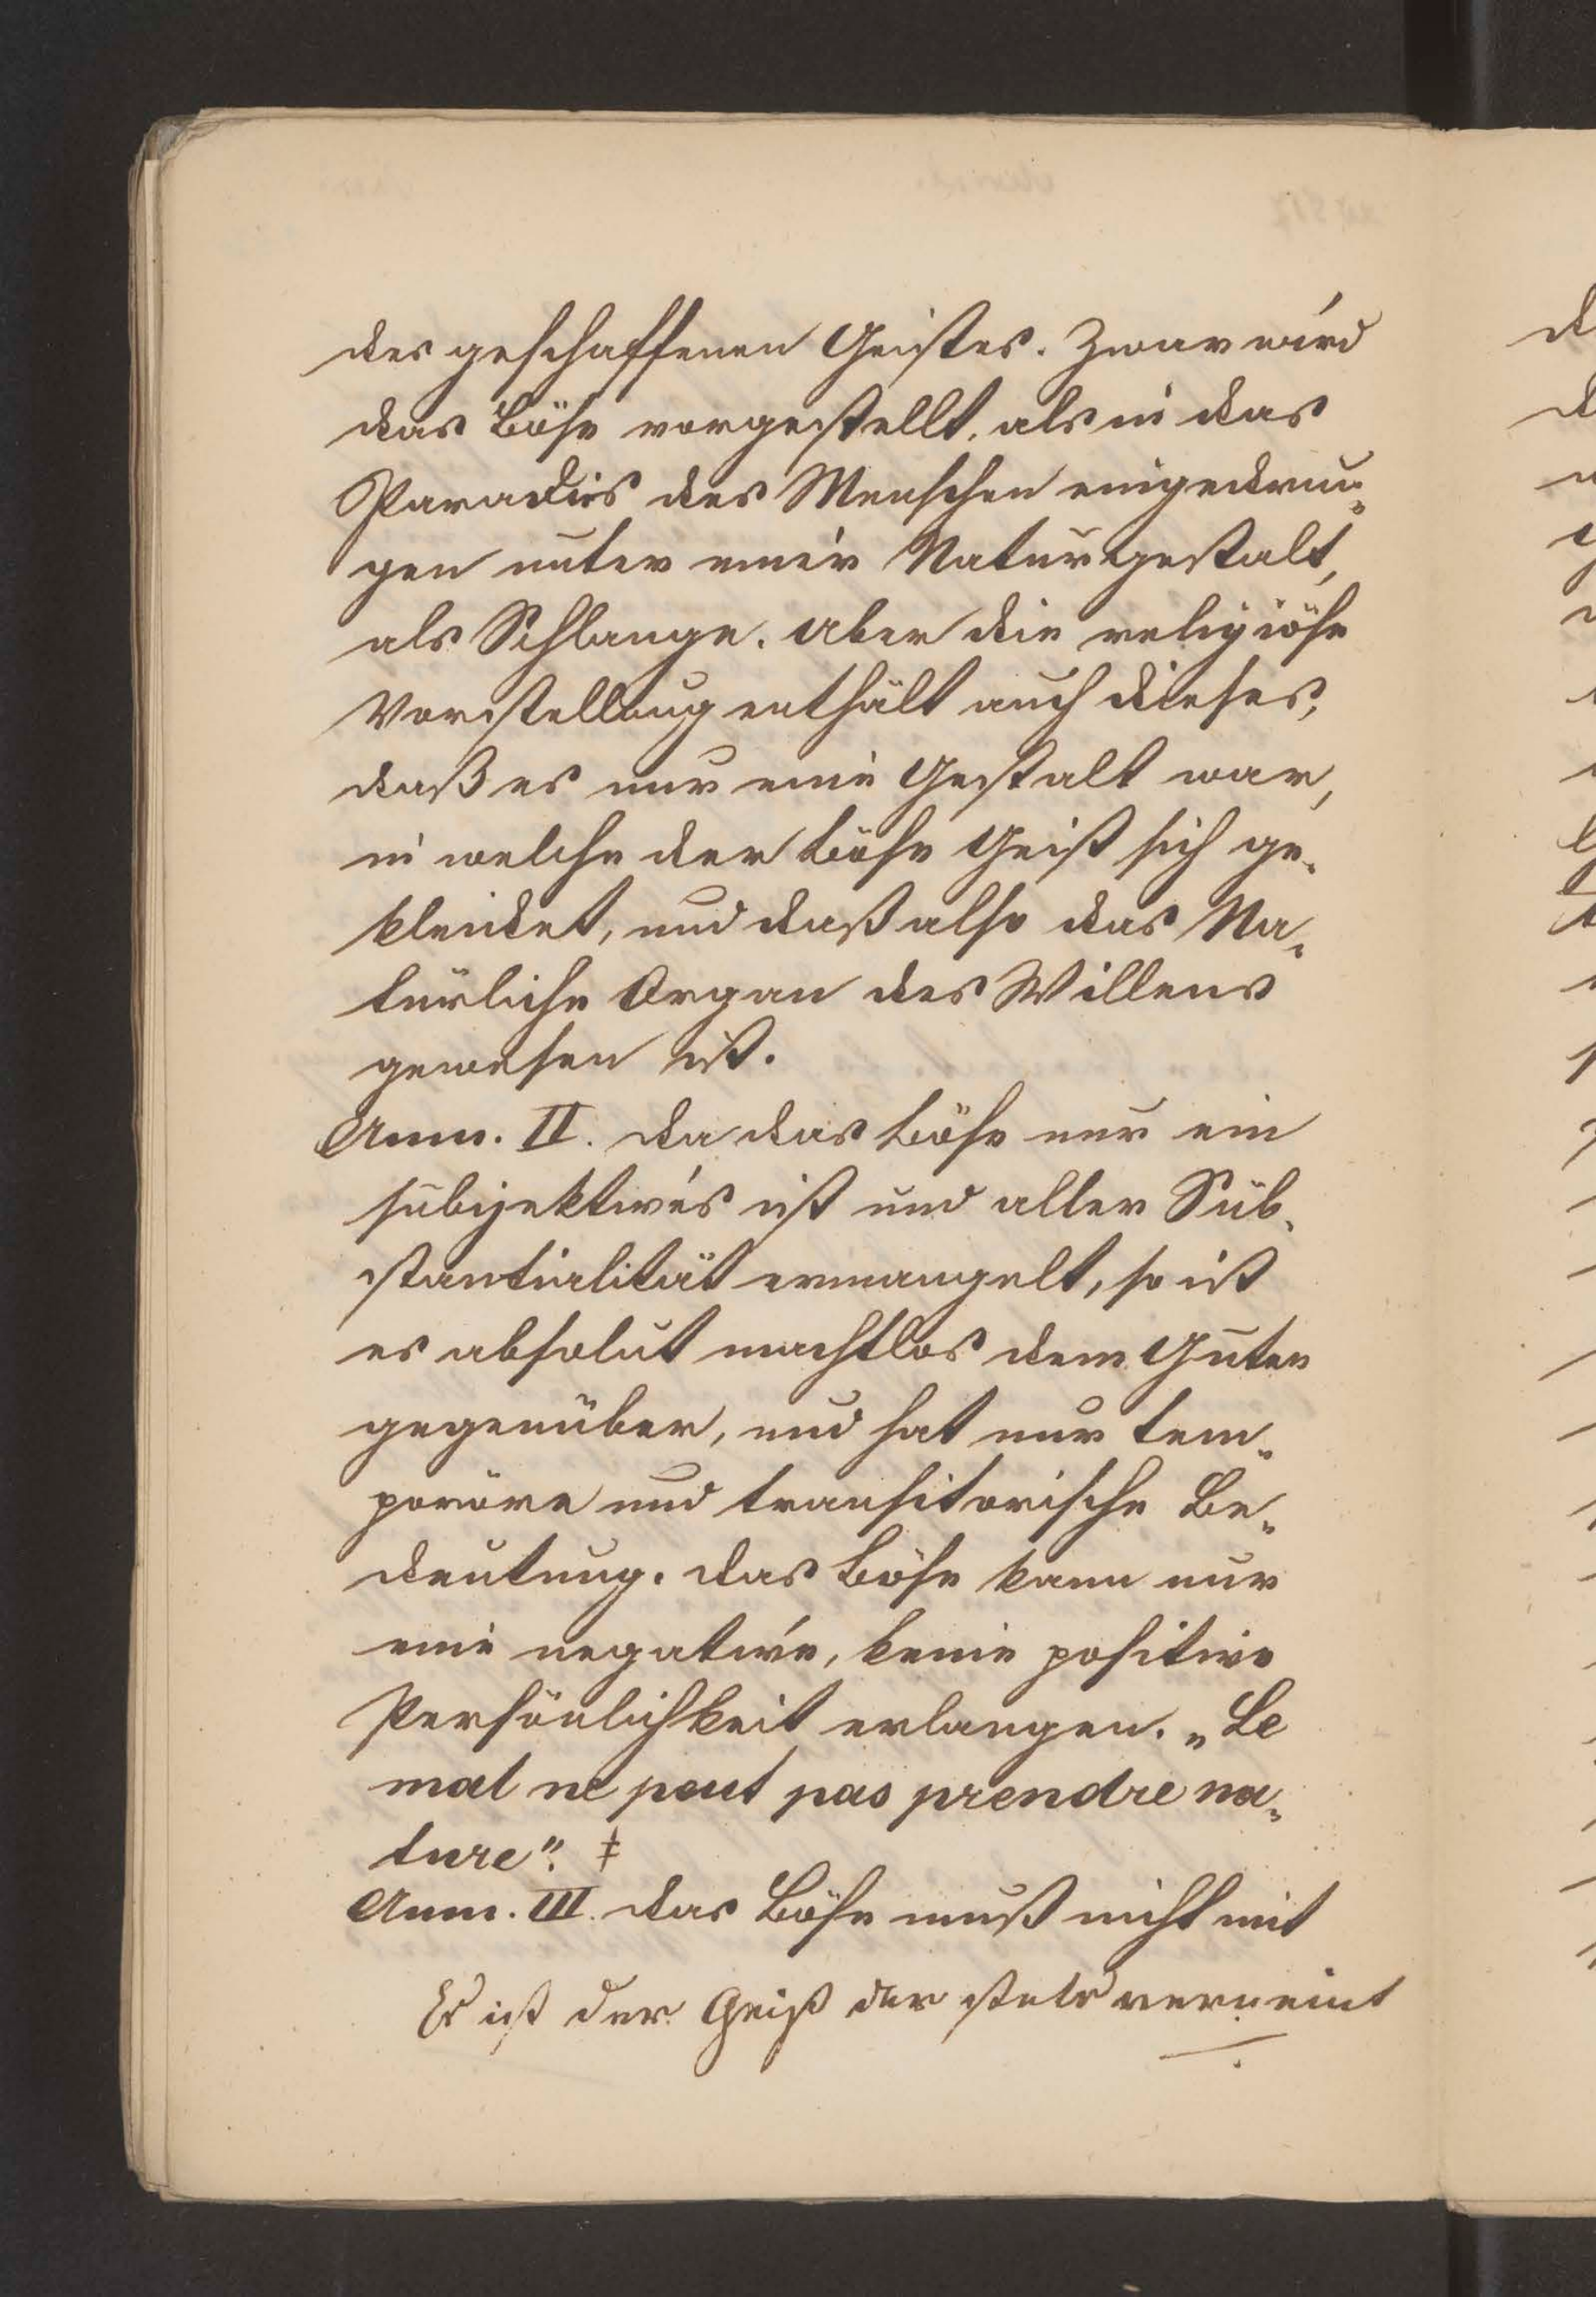 des geschaffenen Geistes. Zwar wird
das Böse vorgestellt, als in das
Paradies des Menschen eingedrun-
gen unter einer Naturgestalt,
als Schlange. Aber die religiöse
Vorstellung enthält auch dieses,
daß es nur eine Gestalt war,
in welche der böse Geist sich ge-
kleidet, und daß also das Na-
türliche Organ des Willens
gewesen ist.
Anm. II. Da das Böse nur ein
subjektives ist und aller Sub-
stantialität ermangelt, so ist
es absolut machtlos dem Guten
gegenüber, und hat nur tem-
poräre und transitorische Be-
deutung. Das Böse kann nur
eine negative, keine positive
Persönlichkeit erlangen. „Le
mal ne peut pas prendre na-
ture“. ‡
Anm. III. Das Böse muß nicht mit
Es ist der Geist der stets verneint